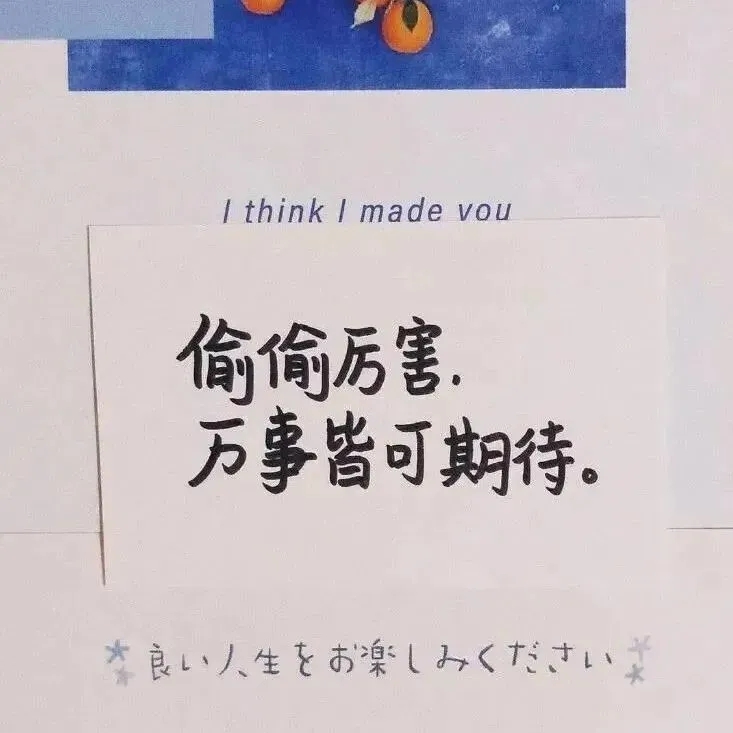 I think I made you
偷偷厉害.
万事皆可期待。
良い人生をお楽しみください